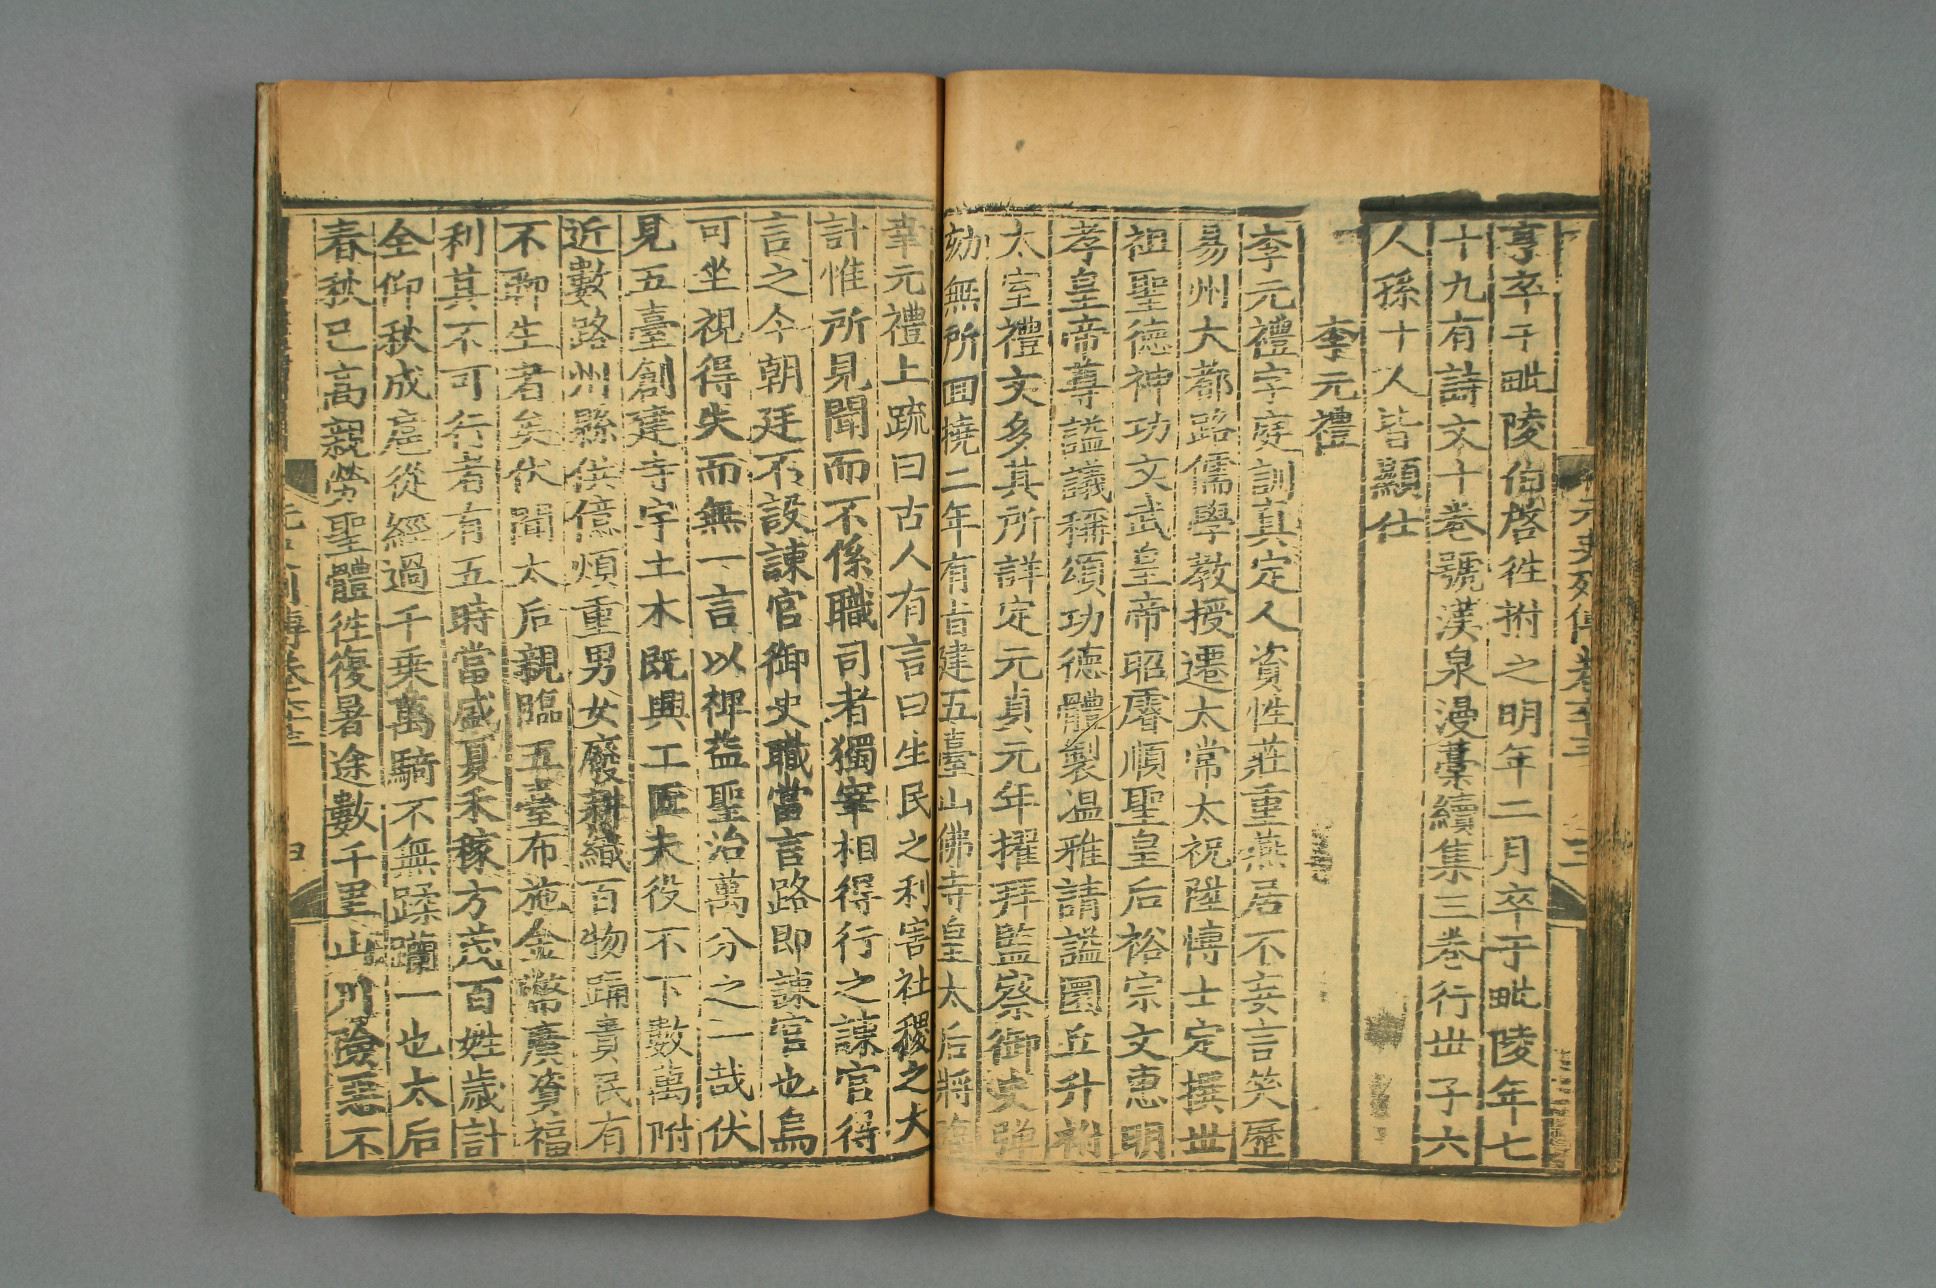 元史列傳卷六十三 三
亨卒于毗陵伯啓往拊之明年二月卒于毗陵年七
十九有詩文十卷號漢泉漫藁續集三卷行世子六
人孫十人皆顯仕
李元禮
李元禮字庭訓真定人資性莊重燕居不妄言笑歷
易州大都路儒學教授遷太常太祝陞博士定撰世
祖聖德神功文武皇帝昭睿順聖皇后裕宗文惠明
孝皇帝尊謚議稱頌功德體製温雅請謚圜丘升祔
太室禮文多其所詳定元貞元年擢拜監察御史彈
劾無所回撓二年有旨建五臺山佛寺皇太后將臨
幸元禮上疏曰古人有言曰生民之利害社稷之大
計惟所見聞而不係職司者獨宰相得行之諫官得
言之今朝廷不設諫官御史職當言路即諫官也烏
可坐視得失而無一言以裨益聖治萬分之一哉伏
見五臺創建寺宇土木既興工匠夫役不下數萬附
近數路州縣供億煩重男女廢耕織百物踊貴民有
不聊生者矣伏聞太后親臨五臺布施金幣廣資福
利其不可行者有五時當盛夏禾稼方茂百姓歲計
全仰秋成扈從經過千乘萬騎不無蹂躪一也太后
春秋已高親勞聖體往復暑途數千里山川險惡不
元史列傳卷六十三 四